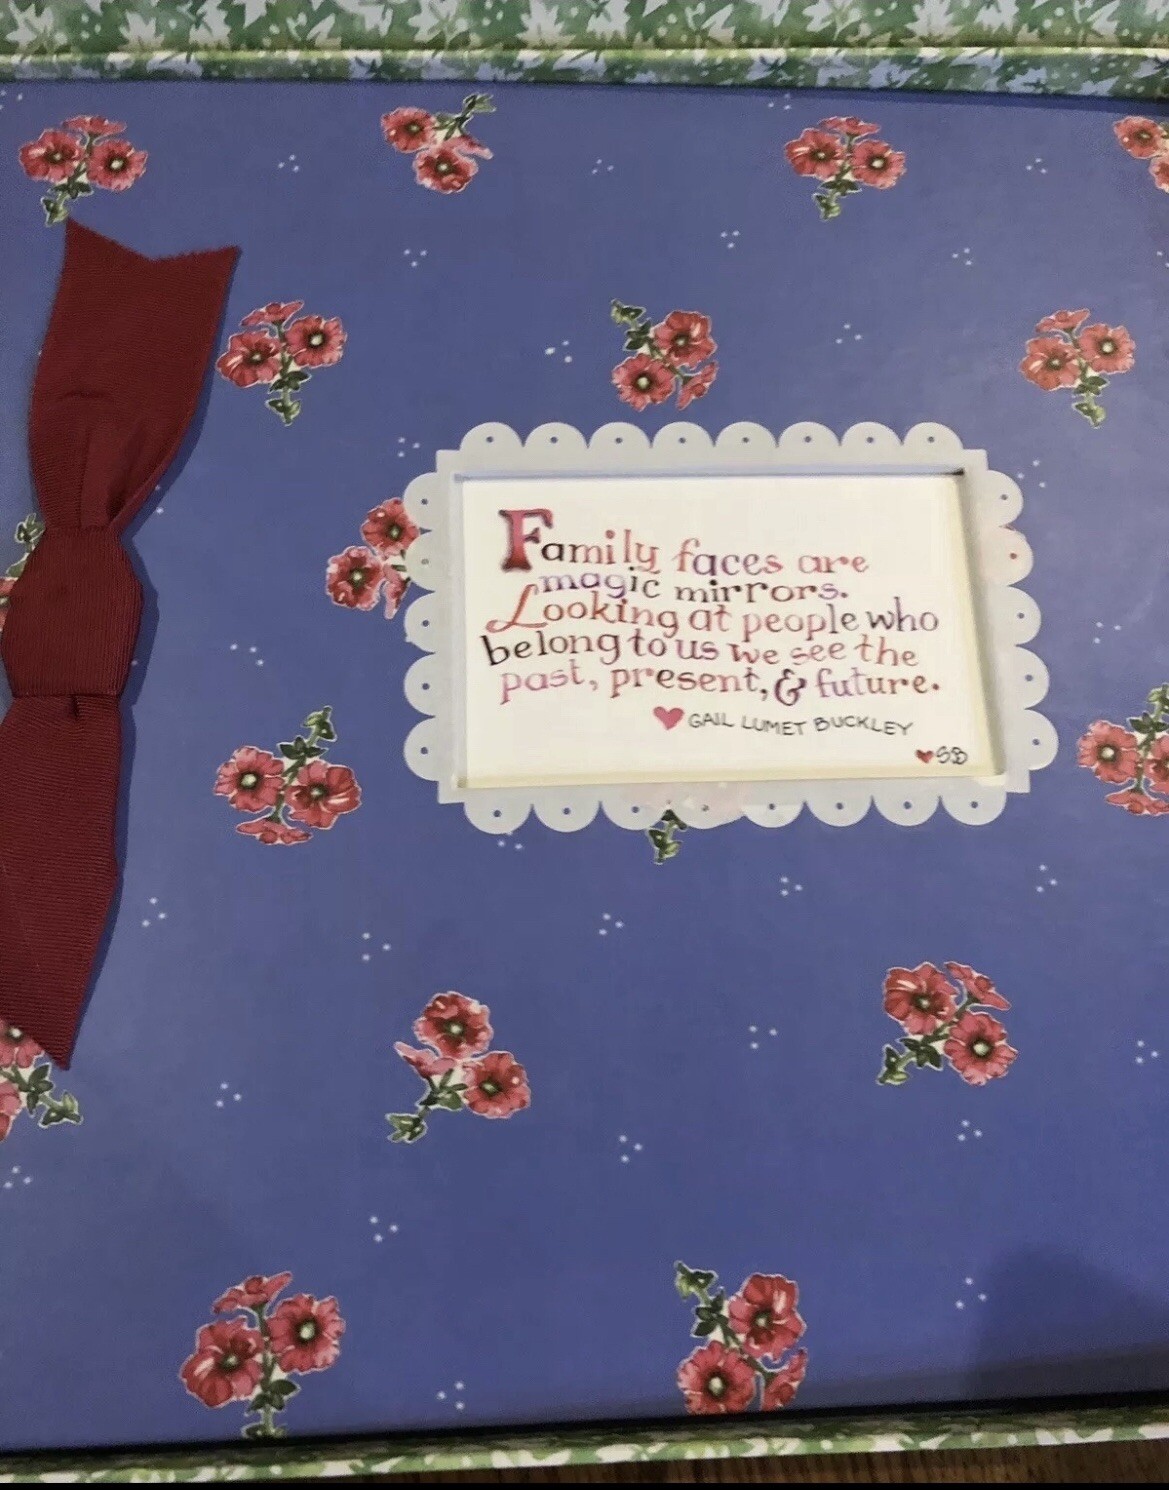 Family faces are
magic mirrors.
Looking at people who
belong to us we see the
past, present, & future.
GAIL LUMET BUCKLEY
SB